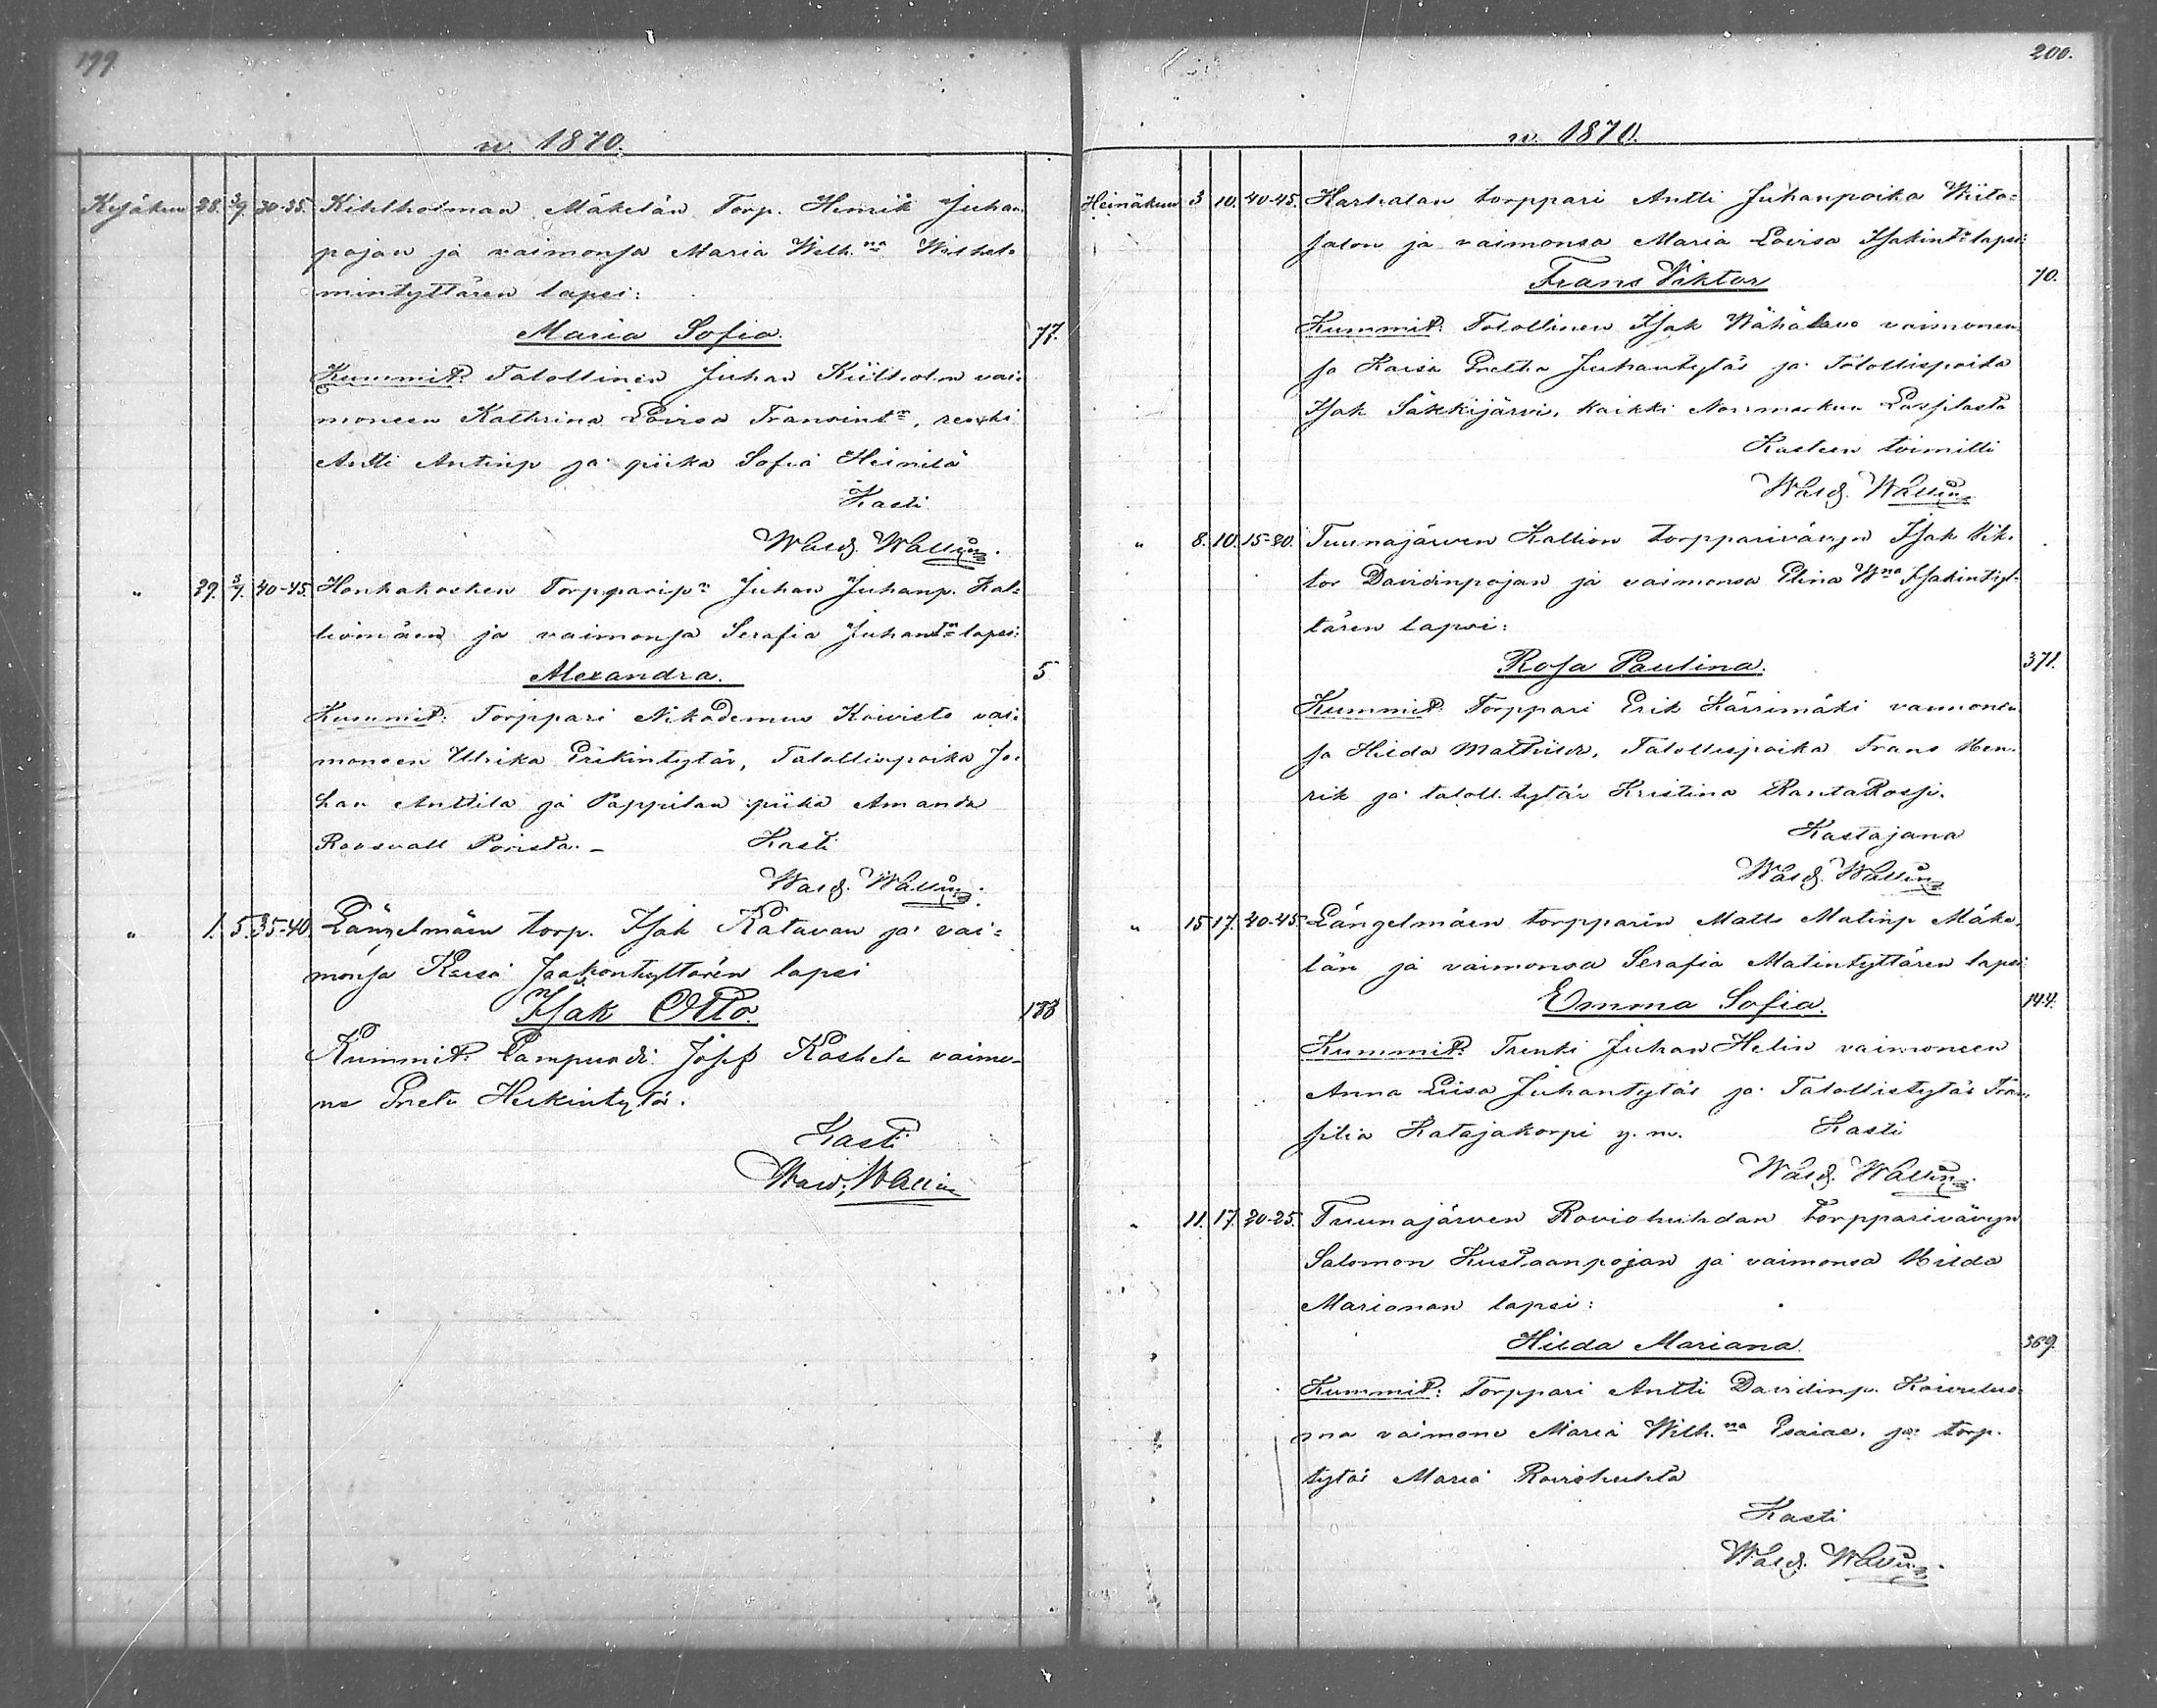 199
w. 1870.
Kesäkuu 28. 3/7. 30-35. Kihlholman Mäkelän Torp. Henrik Juhan
pojan ja vaimonsa Maria Wilh.na Wilhel-
mintyttären lapsi:
Maria Sofia. 77.
Kummit: Talollinen Juhan Kiilholm vai-
moneen Kathrina Lovisa Fransint:r, renki
Antti Antinp ja piika Sofia Heinilä
Kasti
Wald. Wallin.
" 29. 3/7. 40-45. Honkakosken Torpparip:n Juhan Juhanp. Kal-
liomäen ja vaimonsa Serafia Juhant:n lapsi:
Alexandra. 5
Kummit: Torppari Nikodemus Koivisto vai-
moneen Ulrika Erikintytär, Talollispoika Ju-
han Anttila ja Pappilan piika Amanda
Roosvall Porista. - Kasti
Wald. Wallin.
" 1. 5. 35-40. Längelmäen torp. Isak Katavan ja vai-
monsa Kaisa Jaakontyttären lapsi
Isak Otto. 188
Kummit: Lampuodi Josef Koskela vaimo-
ne Greta Heikintytär.
Kasti
Wald. Wallin
200.
w. 1870.
Heinäkuu 3 10. 40-45. Harhalan torppari Antti Juhanpoika Wiita-
salon ja vaimonsa Maria Lovisa Isakint:n lapsi:
Frans Viktor 70.
Kummit: Talollinen Isak vaimonen-
sa Kaisa Greta Juhantytär ja Talollispoika
Isak Säkkijärvi, kaikki Normarkun Lassilasta
Kasteen toimitti
Wald. Wallin
" 8. 10. 15-20. Tuunajärven Kallion torpparivävyn Isak Vik-
tor Davidinpojan ja vaimonsa Elina W:na Isakintyt-
tären lapsi:
Rosa Paulina. 371.
Kummit: Torppari Erik Kärrimäki vaimonen-
sa Hilda Mathilda, Talollispoika Frans Hen-
rik ja taloll. tytär Kristina RantaRossi.
Kastajana
Wald. Wallin
" 15 17. 40-45. Längelmäen torpparin Matts Matinp Mäke-
län ja vaimonsa Serafia Matintyttären lapsi
Emma Sofia. 144.
Kummit: Trenki Juhan Helin vaimoneen
Anna Liisa Juhantytär ja Talollistytär Tran-
silia Katajakorpi y. m. Kasti
Wald. Wallin.
" 11. 17. 20-25. Tuunajärven Roviohuhdan torpparivävyn
Salomon Kustaanpojan ja vaimonsa Hilda
Marianan lapsi:
Hilda Mariana. 369.
Kummit: Torppari Antti Davidinp.
vaimone Maria Wilh.na Esaiae. ja torp.
tytär Maria Roviohuhta
Kasti
Wald. Wallin.